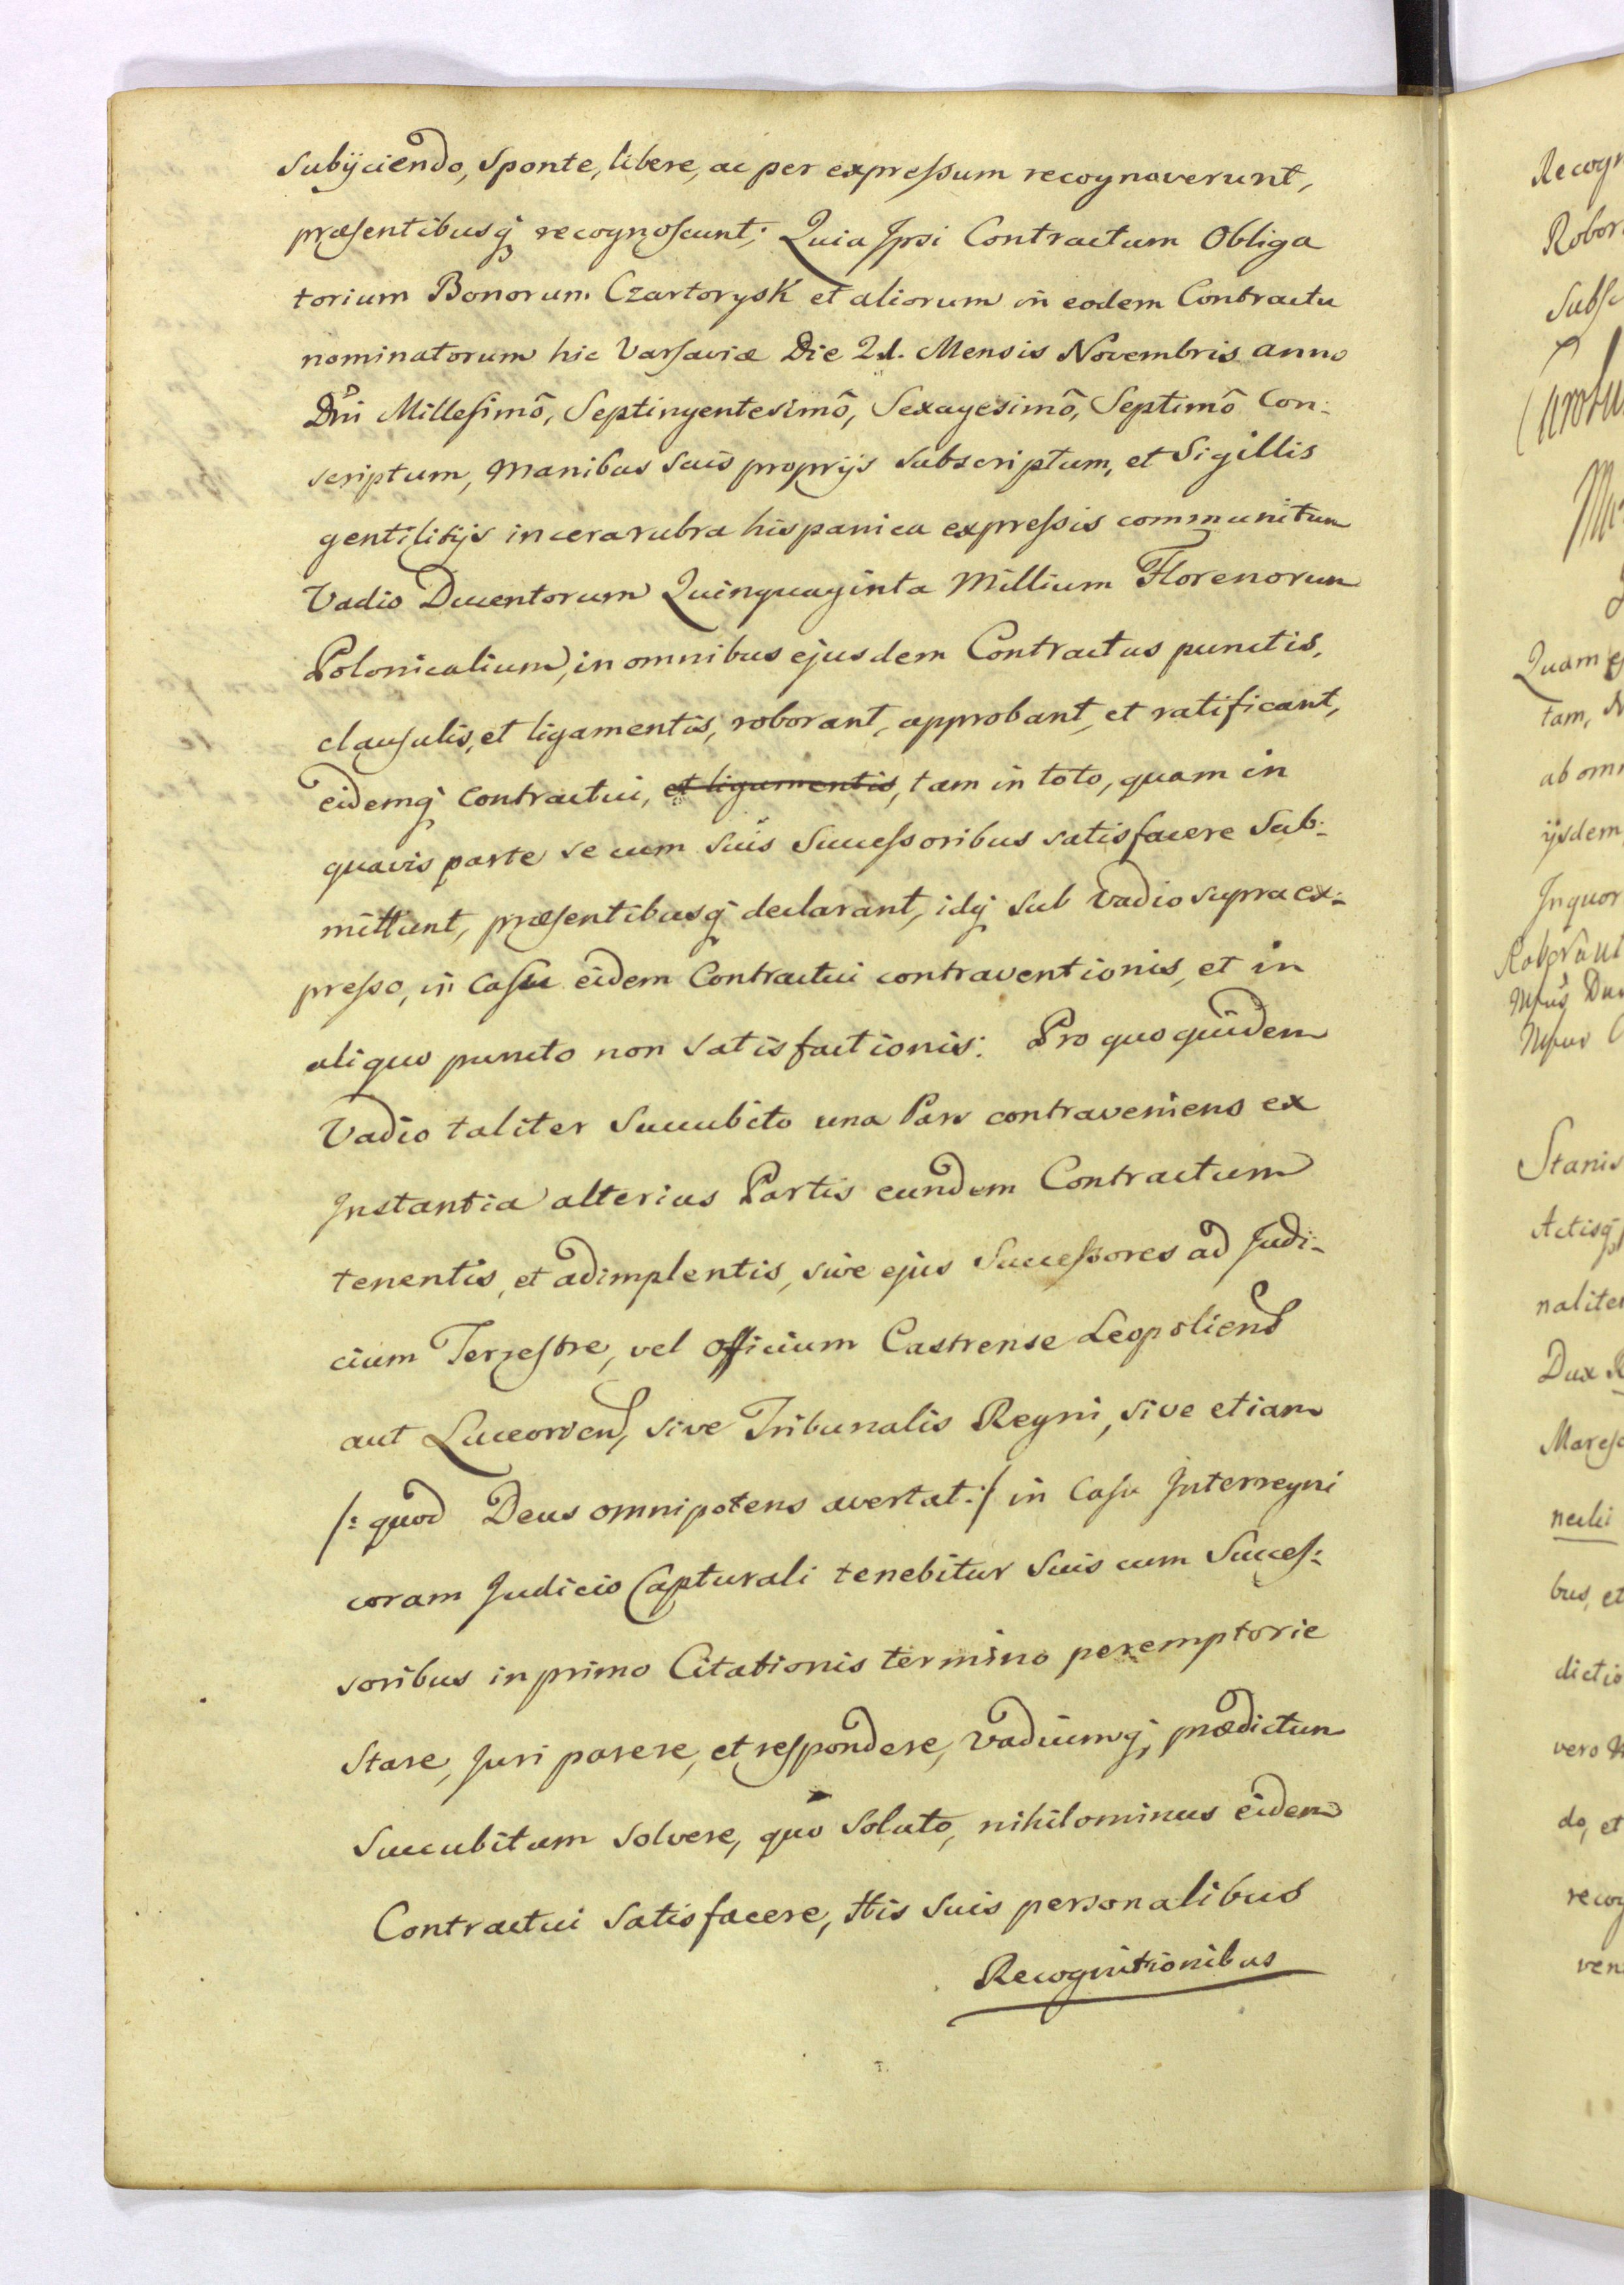 Subijciendo, Sponte, libere, ac per expressum recognoverunt,
præsentibusq recognoscunt; Quia Ipsi Contractum Obliga
torium Bonorum Czartorysk et aliorum in eodem Contractu
nominatorum hic Varsaviæ Die 21. Mensis Novembris anno
Dni Millesimô, Septingentesimô, Sexagesimô, Septimô Con:
scriptum, Manibus suis proprijs subscriptum, et Sigillis
gentilitijs in cera rubra hispanica expressis communitum
Vadio Ducentorum Quinquaginta Millium Florenorum
Polonicalium, in omnibus ejusdem Contractus punctis,
clausulis, et ligamentis, roborant, approbant, et ratificant,
eidemq Contractui, et ligamentis, tam in toto, quam in
quavis parte se cum suis Successoribus satisfacere Sub:
mittunt, præsentibusq declarant, idq sub Vadio supra ex:
presso, in Casu eidem Contractui contraventionis, et in
aliquo puncto non satisfactionis: Pro quo quidem
Vadio taliter Succubito una Pars contraveniens ex
Instantia alterius Partis eundem Contractum
tenentis, et adimplentis, sive ejus Successores ad Judi:
cium Terrestre, vel Officium Castrense Leopoliens
aut Luceorien, sive Tribunalis Regni, sive etiam
/: quod Deus omnipotens avertat :/ in Casu Interregni
coram Judicio Capturali tenebitur Suis cum Succes:
soribus in primo Citationis termino peremptorie
Stare, Juri parere, et respondere, Vadiumq; prædictum
Succubitum solvere, quo soluto, nihilominus eidem
Contractui Satisfacere, His suis personalibus
Recognitionibus
Recogn
Robor
Subsc
Quam
tam,
ab omn
ijsdem
In quor
Stanis
Actisq
naliter
Dux
Maresc
neelii
bus, et
dictio
vero
do, et
recog
ven